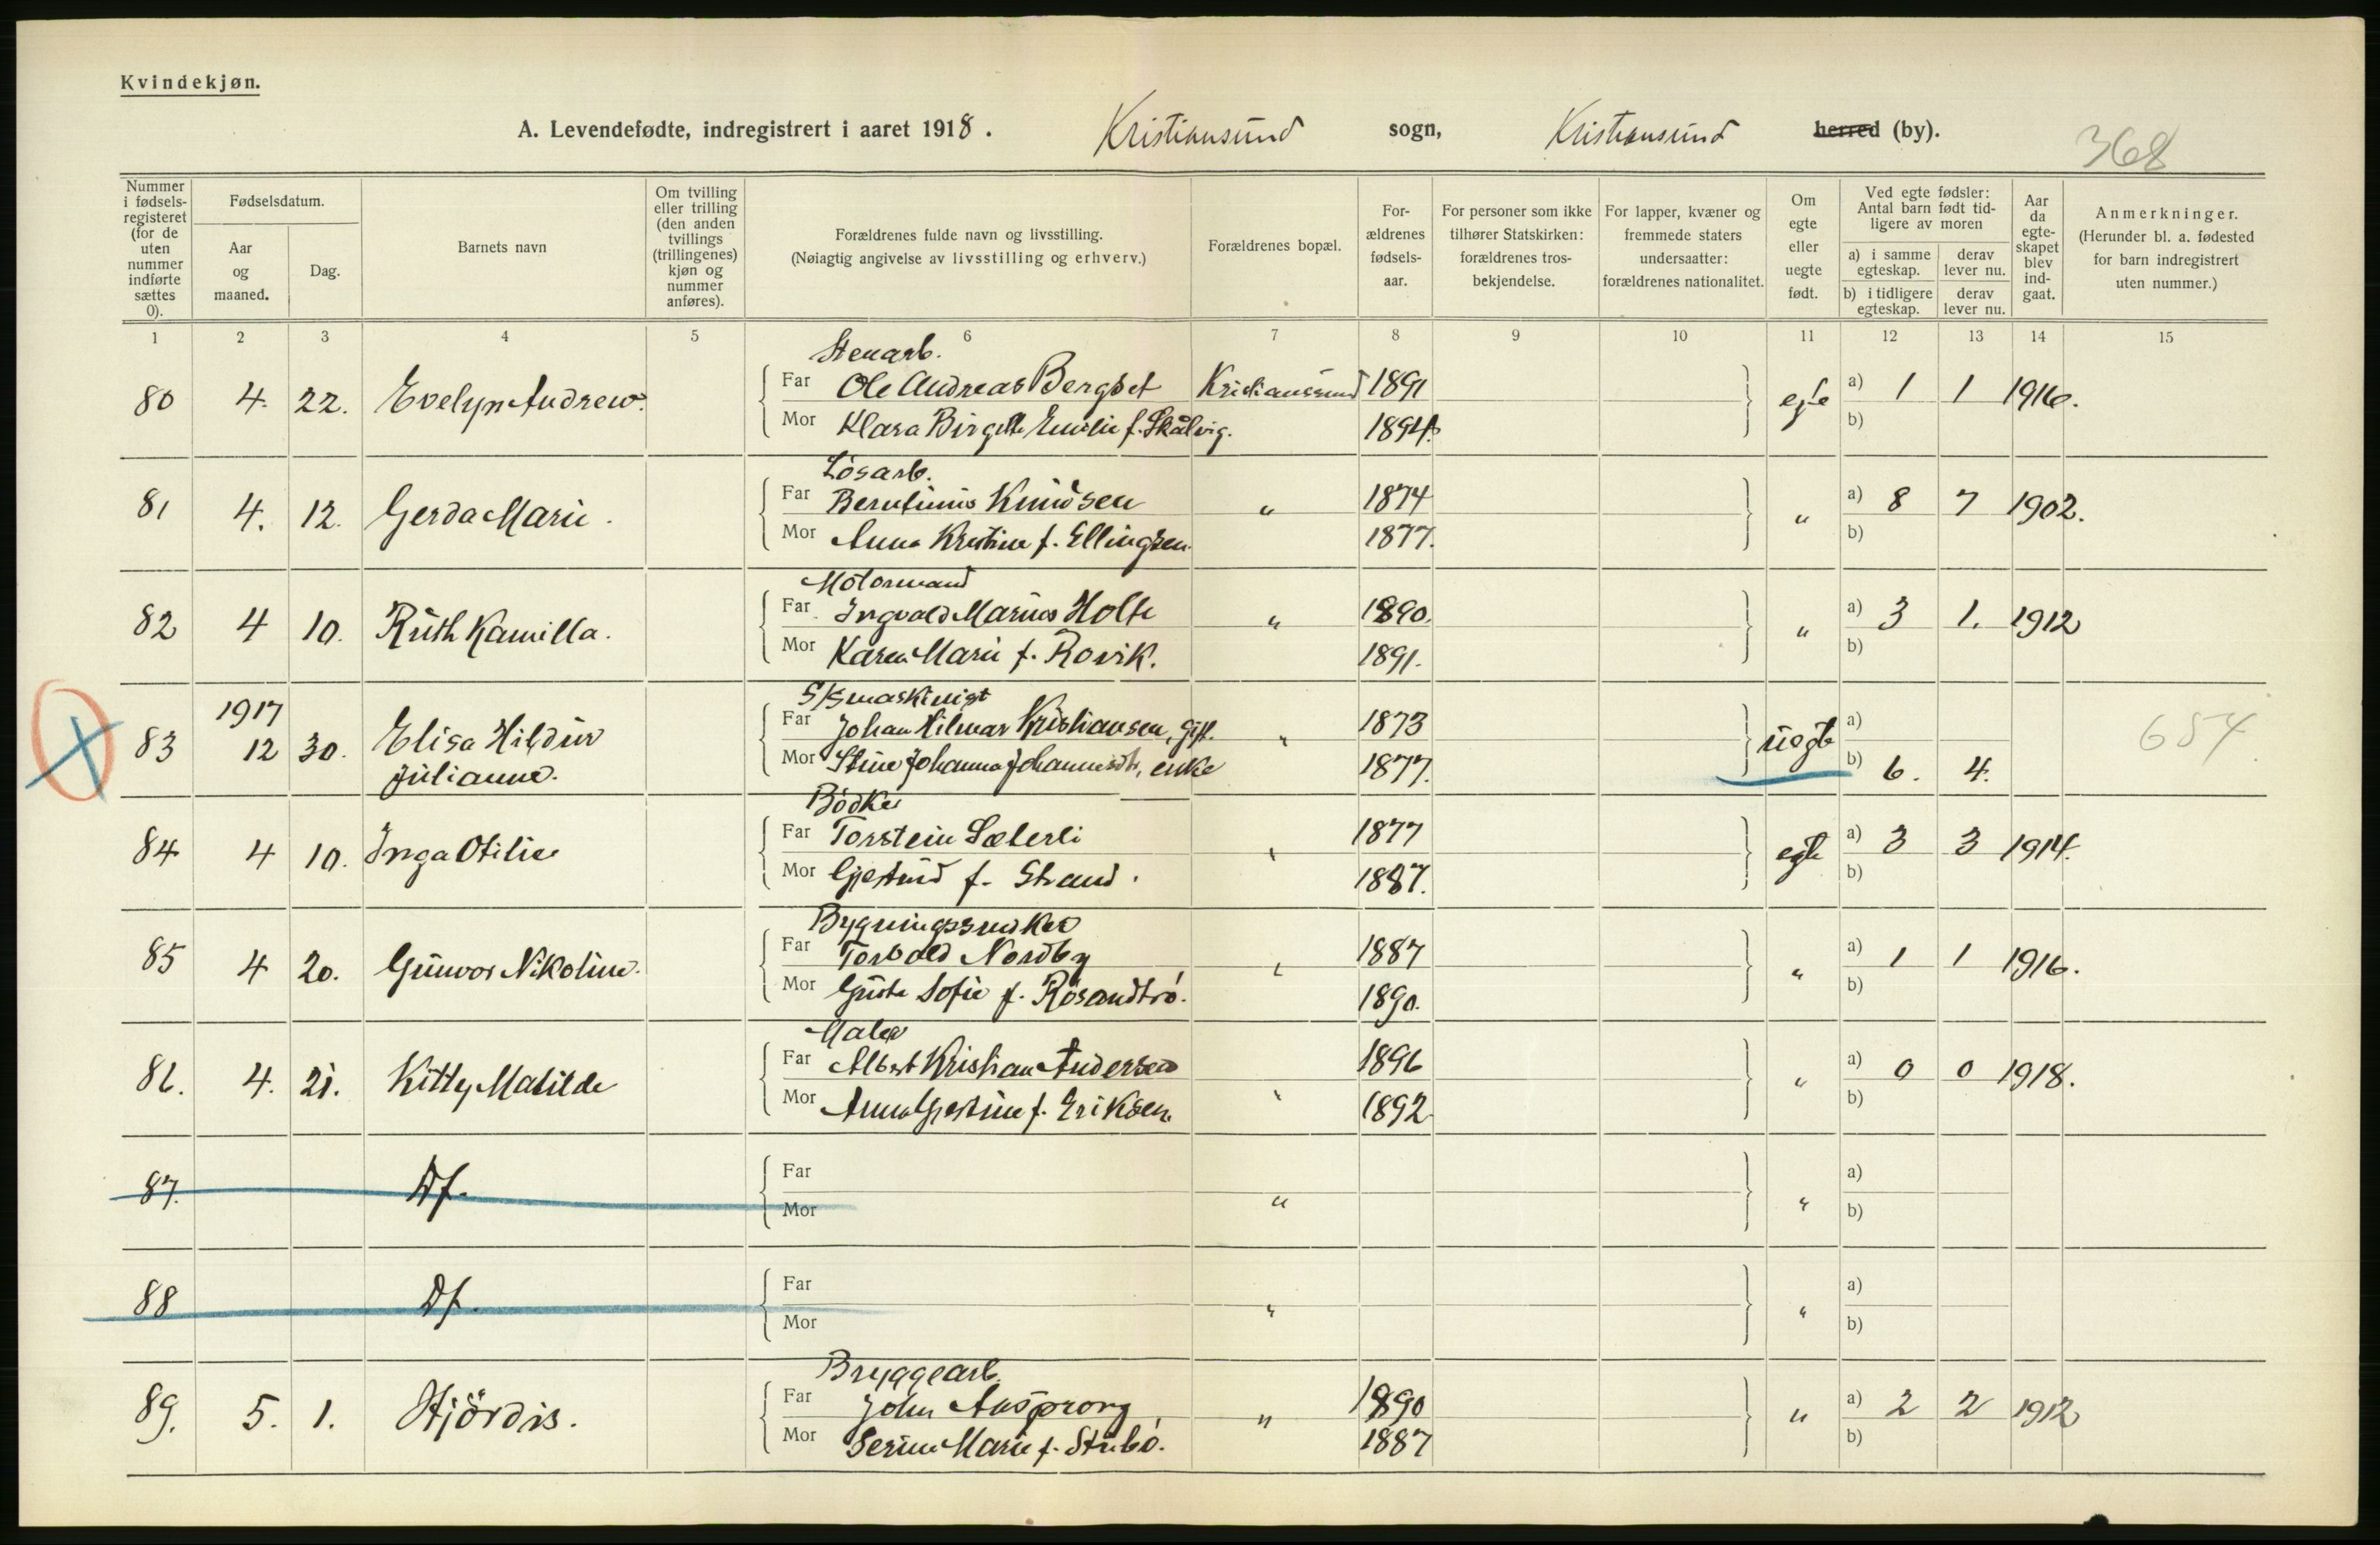 Kvindekjøn.
A. Levendefødte, indregistrert i aaret 1918. Kristiansund sogn, Kristiansund herred (by).
368
Nummer i fødselsregisteret (for de uten nummer indførte sættes 0).
Fødselsdatum.
Aar og maaned.
Dag.
Barnets navn
Om tvilling eller trilling (den anden tvillings (trillingenes) kjøn og nummer anføres).
Forældrenes fulde navn og livsstilling.
(Nøiagtig angivelse av livsstilling og erhverv.)
Forældrenes bopæl.
Forældrenes fødselsaar.
For personer som ikke tilhører Statskirken: forældrenes trosbekjendelse.
For lapper, kvæner og fremmede staters undersaatter: forældrenes nationalitet.
Om egte eller uegte født.
Ved egte fødsler: Antal barn født tidligere av moren
a) i samme egteskap.
derav lever nu.
b) i tidligere egteskap.
derav lever nu.
Aar da egteskapet blev indgaat.
Anmerkninger.
(Herunder bl. a. fødested for barn indregistrert uten nummer.)
1 2 3 4 5 6 7 8 9 10 11 12 13 14 15
Stenarb.
80 4. 22. Evelyn Andrew. Far Ole Andreas Bergset Kristiansund 1891 egte a) 1 1 1916.
Mor Klara Birgitte Emelie f. Skålvig. 1894. b)
Lösarb.
81 4. 12. Gerda Marie. Far Berntinus Knudsen " 1874 " a) 8 7 1902.
Mor Anna Kristine f. Ellingsen. 1877. b)
Motormand
82 4 10. Ruth Kamilla. Far Ingvald Marius Holte " 1890. " a) 3 1. 1912
Mor Karen Marie f. Rovik. 1891. b)
S/Smaskinist
1917
83 12 30. Elisa Hildur Julianne. Far Johan Hilmar Kristiansen, gift. " 1873 uegte a) 654
Mor Stine Johanna Johannesdtr, enke 1877. b) 6. 4.
Bödker
84 4 10. Inga Otilie Far Torstein Sæterli " 1877 egte a) 3 3 1914.
Mor Gjertrud f. Strand. 1887. b)
Bygningssnedker
85 4 20. Gunvor Nikoline. Far Torvald Nordby " 1887 " a) 1 1 1916.
Mor Gusta Sofie f. Rösandtrö. 1890. b)
Maler
86. 4. 21. Kitty Matilde Far Albert Kristian Andersen " 1896 " a) 0 0 1918.
Mor Anna Gjertine f. Eriksen. 1892 b)
87. Df. Far " " a)
Mor b)
88 Df. Far " " a)
Mor b)
Bryggearb.
89. 5. 1. Hjördis. Far John Ansprong " 1890 " a) 2 2 1912
Mor Serine Marie f. Stubö. 1887 b)